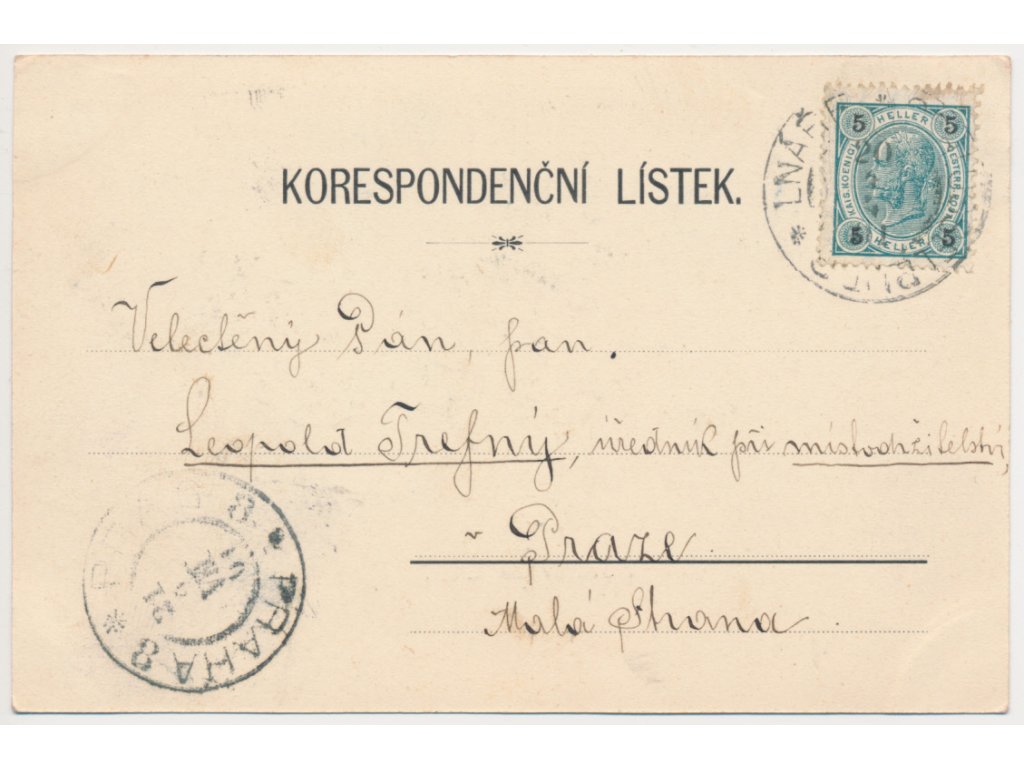 KORESPONDENČNÍ LÍSTEK.
5 HELLER 5
KAIS. KOENIGL.
5 HELLER 5
LNÁŘE
20
Velectěný Pán, pan.
Leopold Trefný, úředník při místodržitelství,
v Praze
Malá Strana
PRAG 8. * PRAHA 8 *